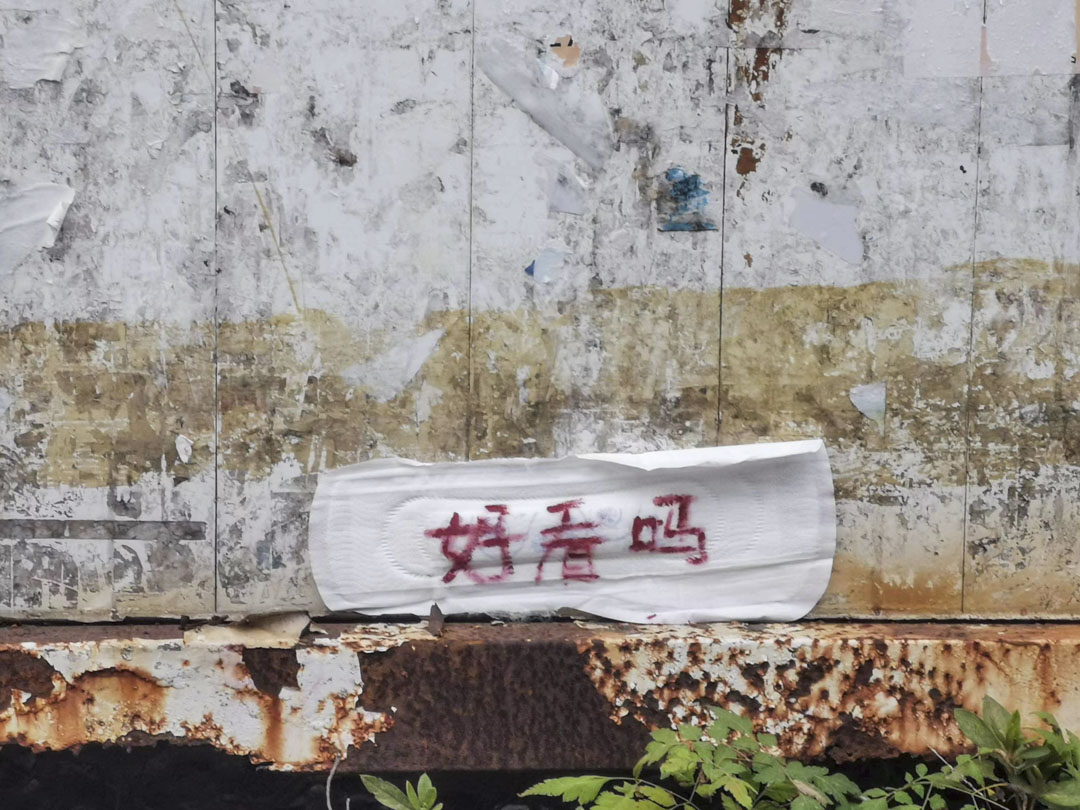 好看吗